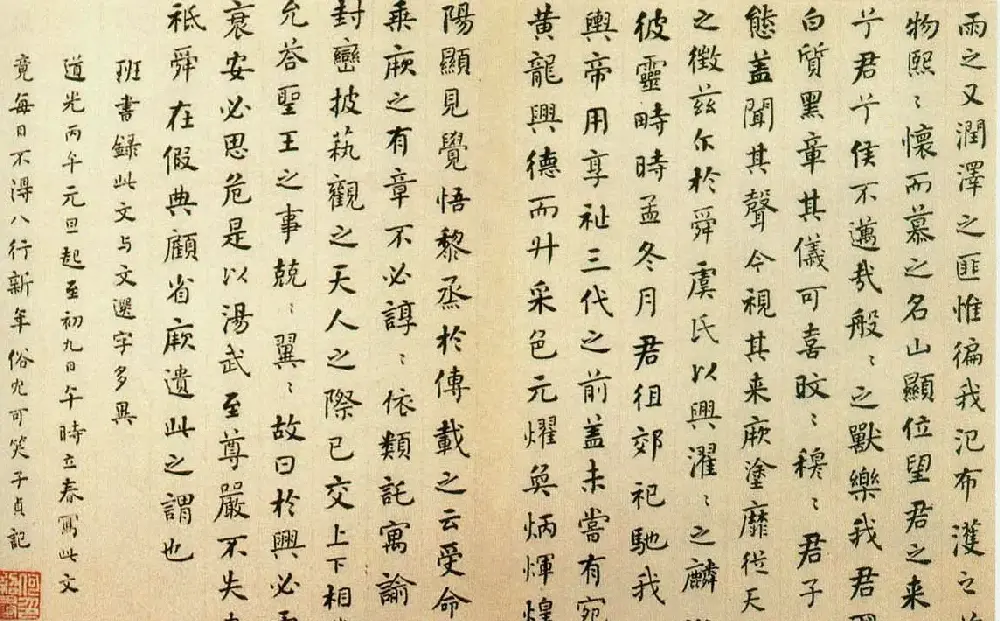 雨之又潤澤之匪惟徧我氾布濩之
物熙〻懷而慕之名山顯位望君之来
兮君兮侯不邁哉般〻之獸樂我君
白質黑章其儀可喜旼〻穆〻君子
態蓋聞其聲今視其来厥塗靡從天
之徵茲尔於舜虞氏以興濯〻之麟
彼靈畤時孟冬月君徂郊祀馳我
輿帝用享祉三代之前蓋未嘗有宛
黄龍興德而升采色元燿奐炳煇煌
陽顯見覺悟黎烝於傳載之云受命
乘厥之有章不必諄〻依類託寓諭
封巒披蓺觀之天人之際已交上下相
允荅聖王之事兢〻翼〻故曰於興必
衰安必思危是以湯武至尊嚴不失
祗舜在假典顧省厥遺此之謂也
班書録此文与文選字多異
道光丙午元旦起至初九日午時立春寫此文
竟每日不得八行新年俗冗可笑子貞記